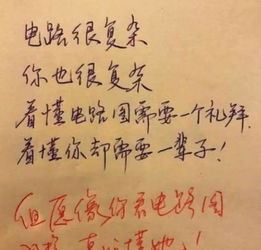 电路很复杂
你也很复杂
看懂电路图需要一个礼拜,
看懂你却需要一辈子!
但愿像你看电路图